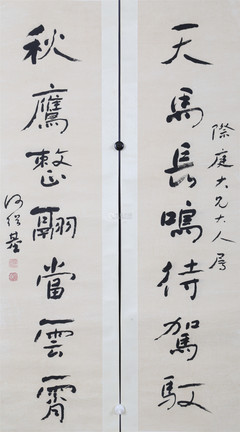 天馬長鳴待駕馭
際庭大兄大人屬
秋鷹整翮當雲霄
何紹基